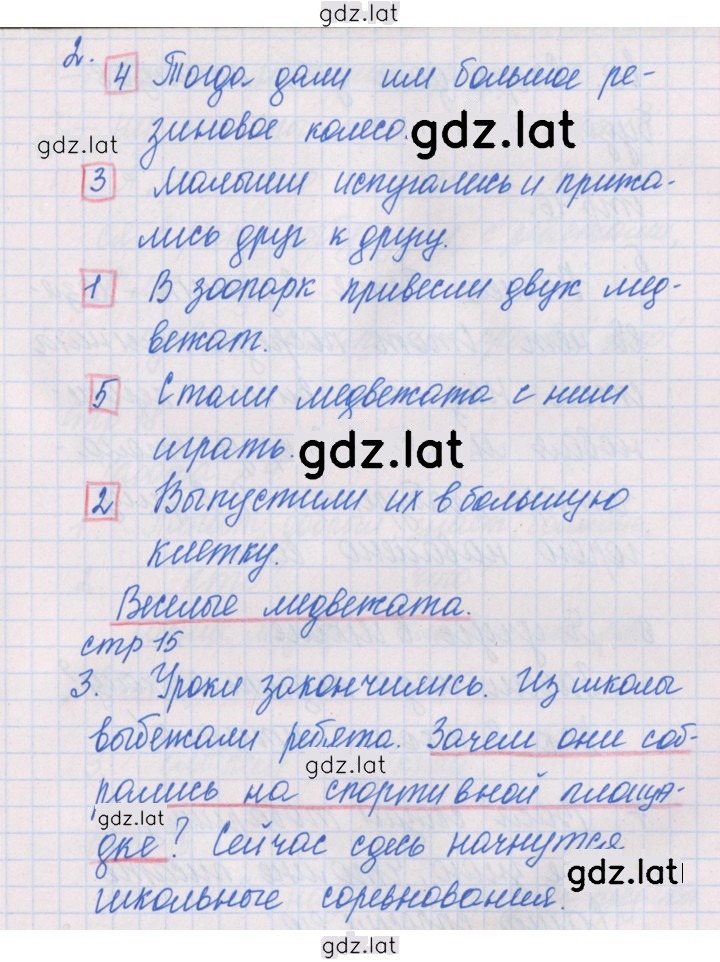 gdz.lat
2.
4 Тогда дали им большое ре-
gdz.lat
зиновое колесо.
gdz.lat
3 Малыши испугались и прижа-
лись друг к другу.
1 В зоопарк привезли двух мед-
вежат.
5 Стали медвежата с ним
играть.
gdz.lat
2 Выпустили их в большую
клетку.
Веселые медвежата.
стр 15
3. Уроки закончились. Из школы
выбежали ребята. Зачем они соб-
gdz.lat
рались на спортивной площа-
gdz.lat
дке? Сейчас здесь начнутся
gdz.lat
школьные соревнования.
gdz.lat